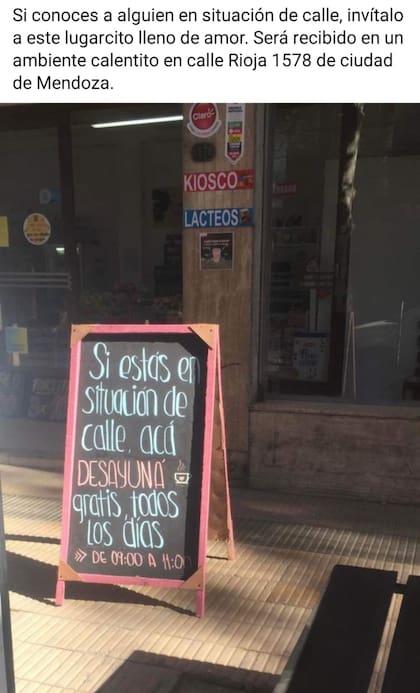 Si conoces a alguien en situación de calle, invítalo
a este lugarcito lleno de amor. Será recibido en un
ambiente calentito en calle Rioja 1578 de ciudad
de Mendoza.
Claro
KIOSCO
LACTEOS
Si estás en
situación de
calle, acá
DESAYUNÁ
gratis, todos
los días
DE 09:00 A 11:00